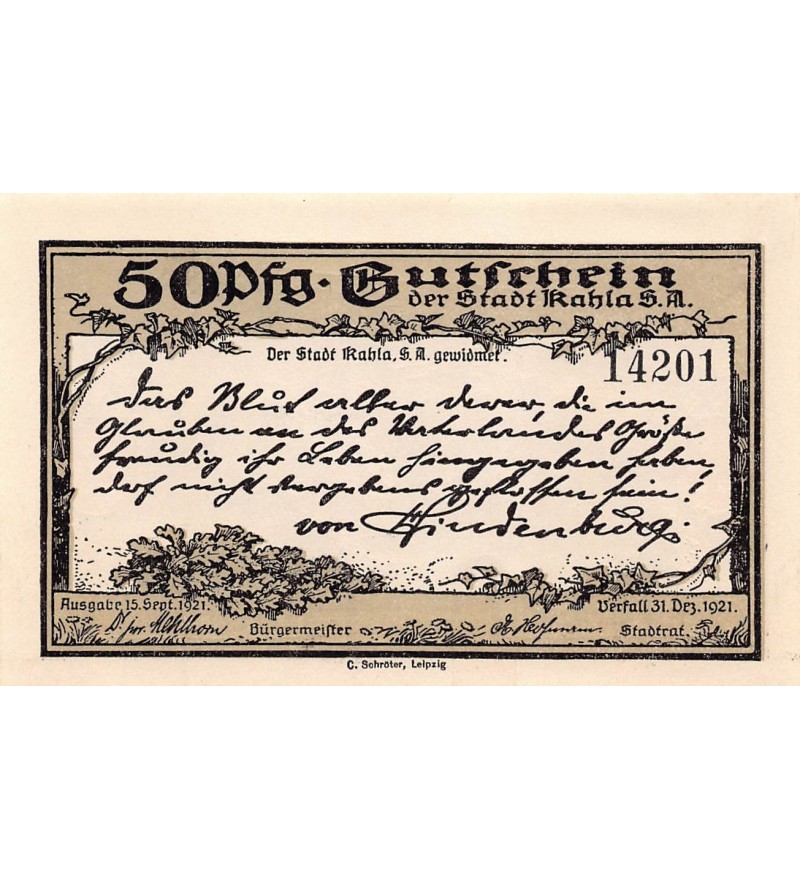 50 Pfg. Gutschein
der Stadt Kahla S. A.
Der Stadt Kahla, S. A. gewidmet.
14201
Das Blut aller derer, die im
Glauben an des Vaterlandes Größe
freudig ihr Leben hingegeben haben,
darf nicht vergebens geflossen sein!
von Hindenburg.
Ausgabe 15. Sept. 1921.
Verfall 31. Dez. 1921.
Dr. jur.
Bürgermeister
Stadtrat.
C. Schröter, Leipzig